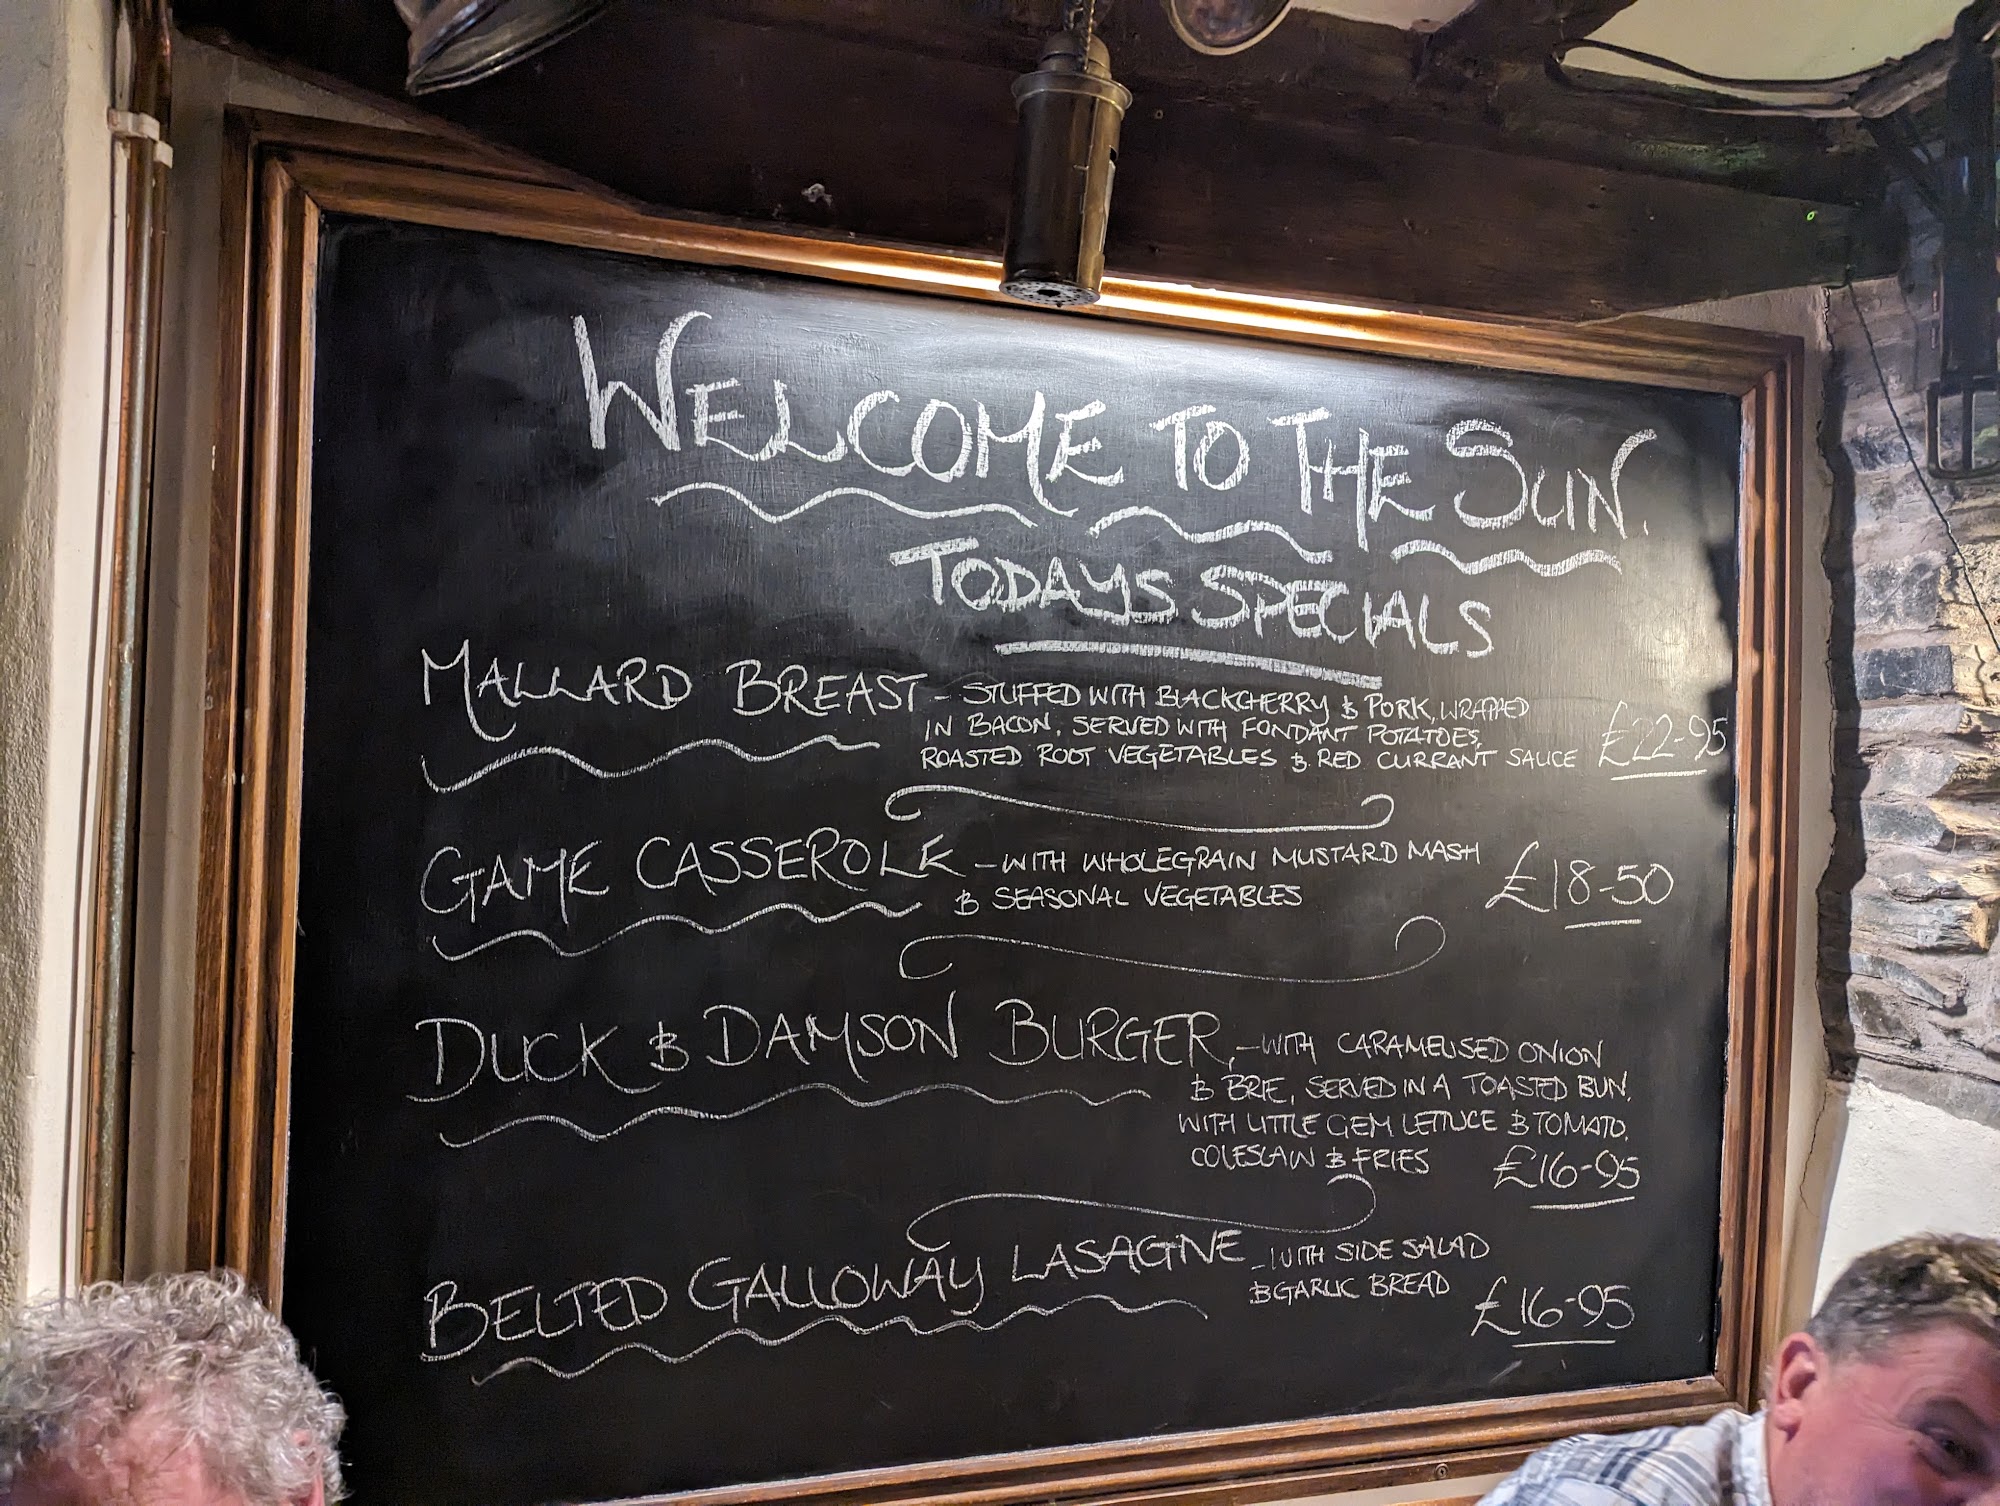 WELCOME TO THE SUN.
TODAYS SPECIALS
MALLARD BREAST - STUFFED WITH BLACKCHERRY & PORK, WRAPPED
IN BACON, SERVED WITH FONDANT POTATOES,
ROASTED ROOT VEGETABLES & RED CURRANT SAUCE £22-95
GAME CASSEROLE - WITH WHOLEGRAIN MUSTARD MASH
& SEASONAL VEGETABLES £18-50
DUCK & DAMSON BURGER, - WITH CARAMELISED ONION
& BRIE, SERVED IN A TOASTED BUN,
WITH LITTLE GEM LETTUCE & TOMATO,
COLESLAW & FRIES £16-95
BELTED GALLOWAY LASAGNE - WITH SIDE SALAD
& GARLIC BREAD
£16-95